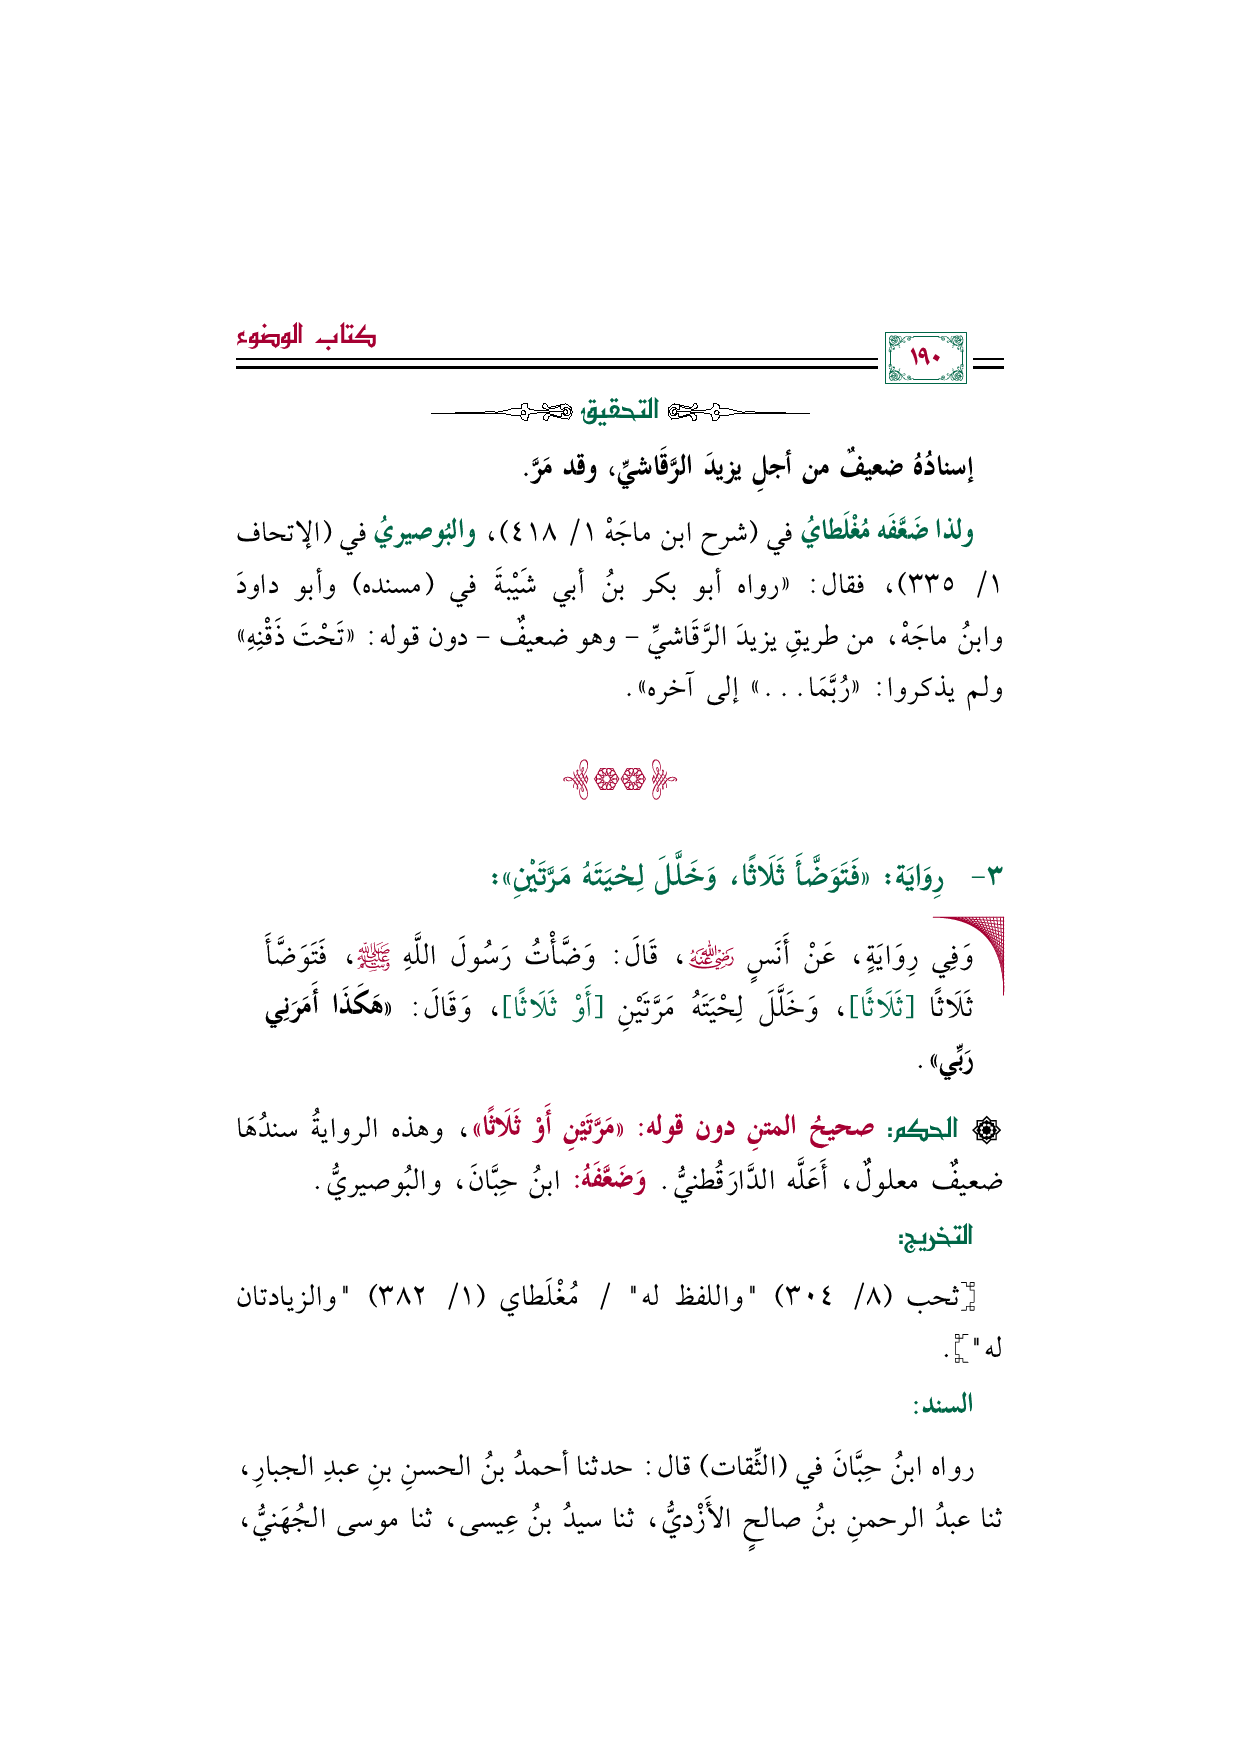 كتاب الوضوء
١٩٠
التحقيق
إسنادُهُ ضعيفٌ من أجلِ يزيدَ الرَّقَاشيِّ، وقد مَرَّ.
ولذا ضَعَّفَه مُغْلَطايُ في (شرح ابن ماجَهْ ١/ ٤١٨)، والبُوصيريُ في (الإتحاف
١/ ٣٣٥)، فقال: «رواه أبو بكر بنُ أبي شَيْبةَ في (مسنده) وأبو داودَ
وابنُ ماجَهْ، من طريقِ يزيدَ الرَّقَاشيِّ - وهو ضعيفٌ - دون قوله: «تَحْتَ ذَقْنِهِ»
ولم يذكروا: «رُبَّمَا...» إلى آخره».
٣- رِوَايَة: «فَتَوَضَّأَ ثَلَاثًا، وَخَلَّلَ لِحْيَتَهُ مَرَّتَيْنِ»:
وَفِي رِوَايَةٍ، عَنْ أَنَسٍ رضي الله عنه، قَالَ: وَضَّأْتُ رَسُولَ اللَّهِ ﷺ، فَتَوَضَّأَ
ثَلَاثًا [ثَلَاثًا]، وَخَلَّلَ لِحْيَتَهُ مَرَّتَيْنِ [أَوْ ثَلَاثًا]، وَقَالَ: «هَكَذَا أَمَرَنِي
رَبِّي».
الحكم: صحيحُ المتنِ دون قوله: «مَرَّتَيْنِ أَوْ ثَلَاثًا»، وهذه الروايةُ سندُهَا
ضعيفٌ معلولٌ، أَعَلَّه الدَّارَقُطنيُّ. وَضَعَّفَهُ: ابنُ حِبَّانَ، والبُوصيريُّ.
التخريج:
[ثحب (٨/ ٣٠٤) "واللفظ له" / مُغْلَطاي (١/ ٣٨٢) "والزيادتان
له"].
السند:
رواه ابنُ حِبَّانَ في (الثِّقات) قال: حدثنا أحمدُ بنُ الحسنِ بنِ عبدِ الجبارِ،
ثنا عبدُ الرحمنِ بنُ صالحٍ الأَزْديُّ، ثنا سيدُ بنُ عِيسى، ثنا موسى الجُهَنيُّ،